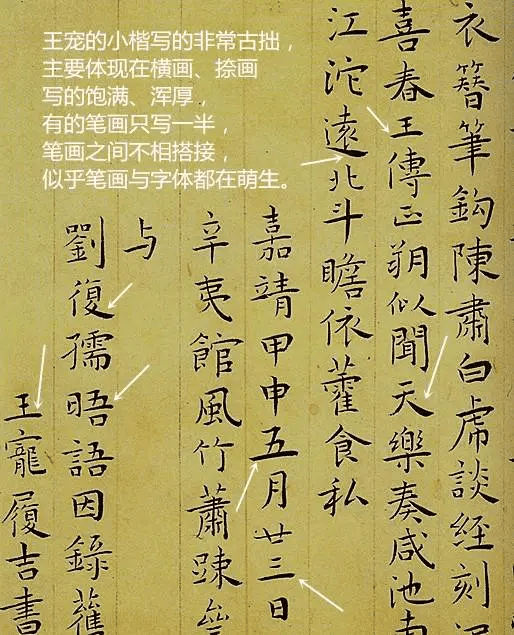 王宠的小楷写的非常古拙，
主要体现在横画、捺画
写的饱满、浑厚，
有的笔画只写一半，
笔画之间不相搭接，
似乎笔画与字体都在萌生。
衣簪筆鈎陳肅白虎談經刻
喜春王傳正朔似聞天樂奏咸池南
江沱遠北斗瞻依藿食私
嘉靖甲申五月廿三日
辛夷館風竹蕭踈
与
劉復孺晤語因録舊
王寵履吉書